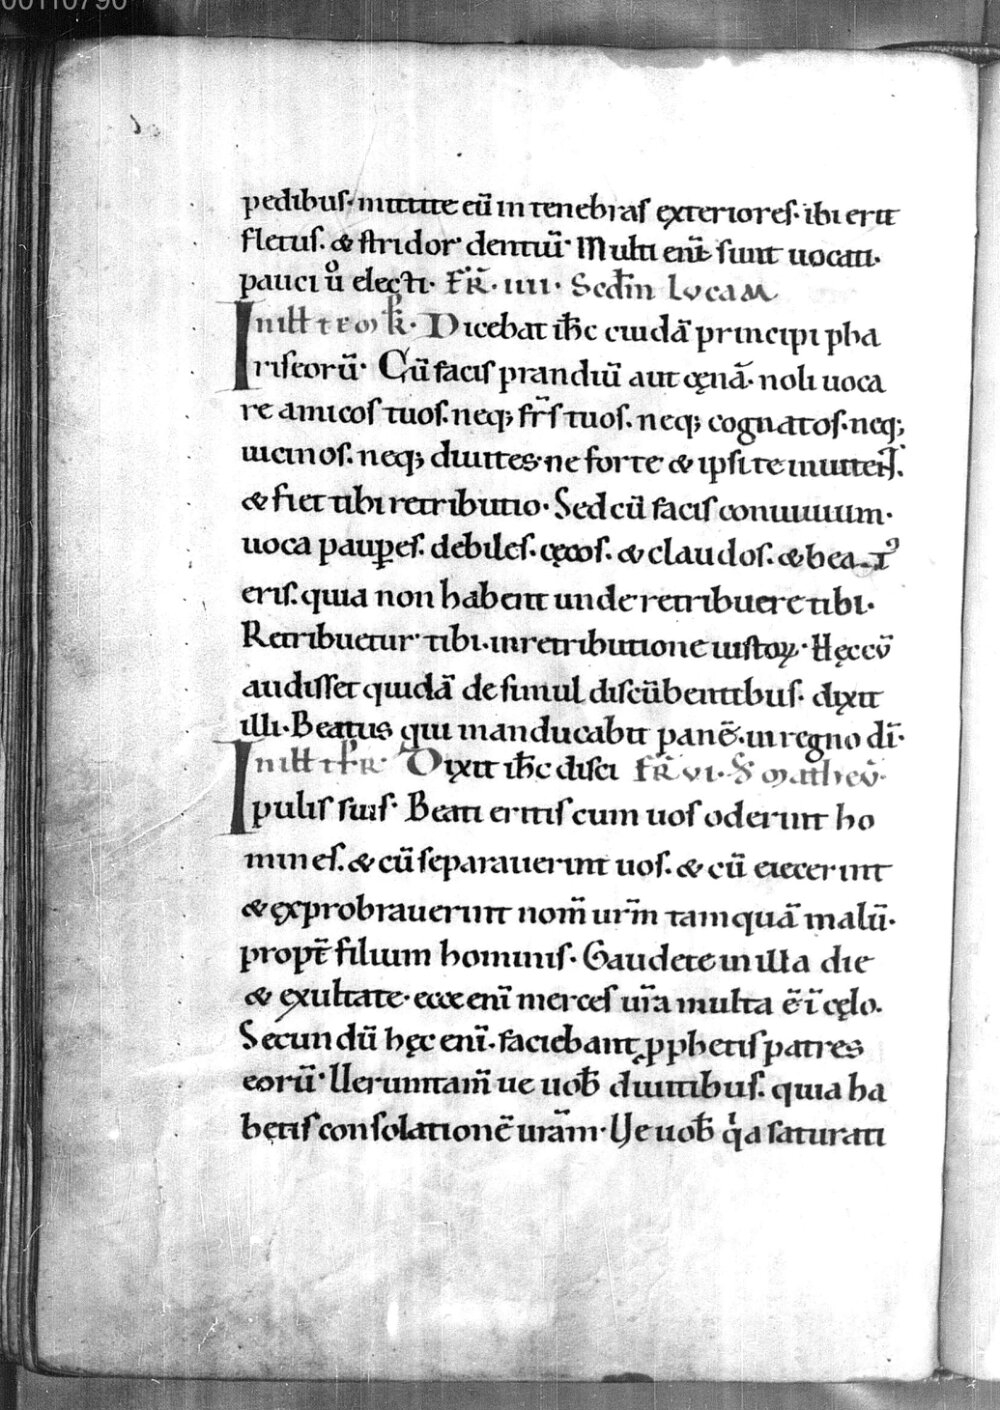 00110790
pedibuſ· mittite eū in tenebras exterioreſ· ibi erit
fletuſ· & ſtridor dentiū· Multi enī ſunt uocati·
pauci ů electi· FR̄· IIII· Scdm̄ LucaM
In ill̄ tēor̄ R̄· Dicebat ih̄c cuidā principi pha
riſeorū· Cū faciſ prandiū aut cęnā· noli uoca
re amicoſ tuoſ· neq; fr̄ſ tuoſ· neq; cognatoſ· neq;
uicinoſ· neq; diuites· ne forte & ipſi te inuitent·
& fiet tibi retributio· Sed cū faciſ conuiuium·
uoca paup̲eſ· debileſ· cęcoſ· & claudoſ· & beatꝰ
eriſ· quia non habent unde retribuere tibi·
Retribuetur tibi· in retributione iuſtoꝝ· Hęc cū
audiſſet quidā de ſimul diſcūbentibuſ· dixit
illi· Beatus qui manducabit panē· in regno dī·
In ill̄ t̄ R̄· Dixit ih̄c diſci FR̄ VI· S̄ Matheū·
puliſ ſuiſ· Beati eritiſ cum uoſ oderint ho
mineſ· & cū ſeparauerint uoſ· & cū eiecerint
& exprobrauerint nom̄ ur̄m tamquā malū·
propt̄ filium hominiſ· Gaudete in illa die
& exultate· ecce enī merceſ ur̄a multa ē ī cęlo·
Secundū hęc enī· faciebant ꝓphetiſ patres
eorū· Ueruntam̄ ue uob̄ diuitibuſ· quia ha
bętiſ conſolationē urām· Ue uob̄ qͥa ſaturati